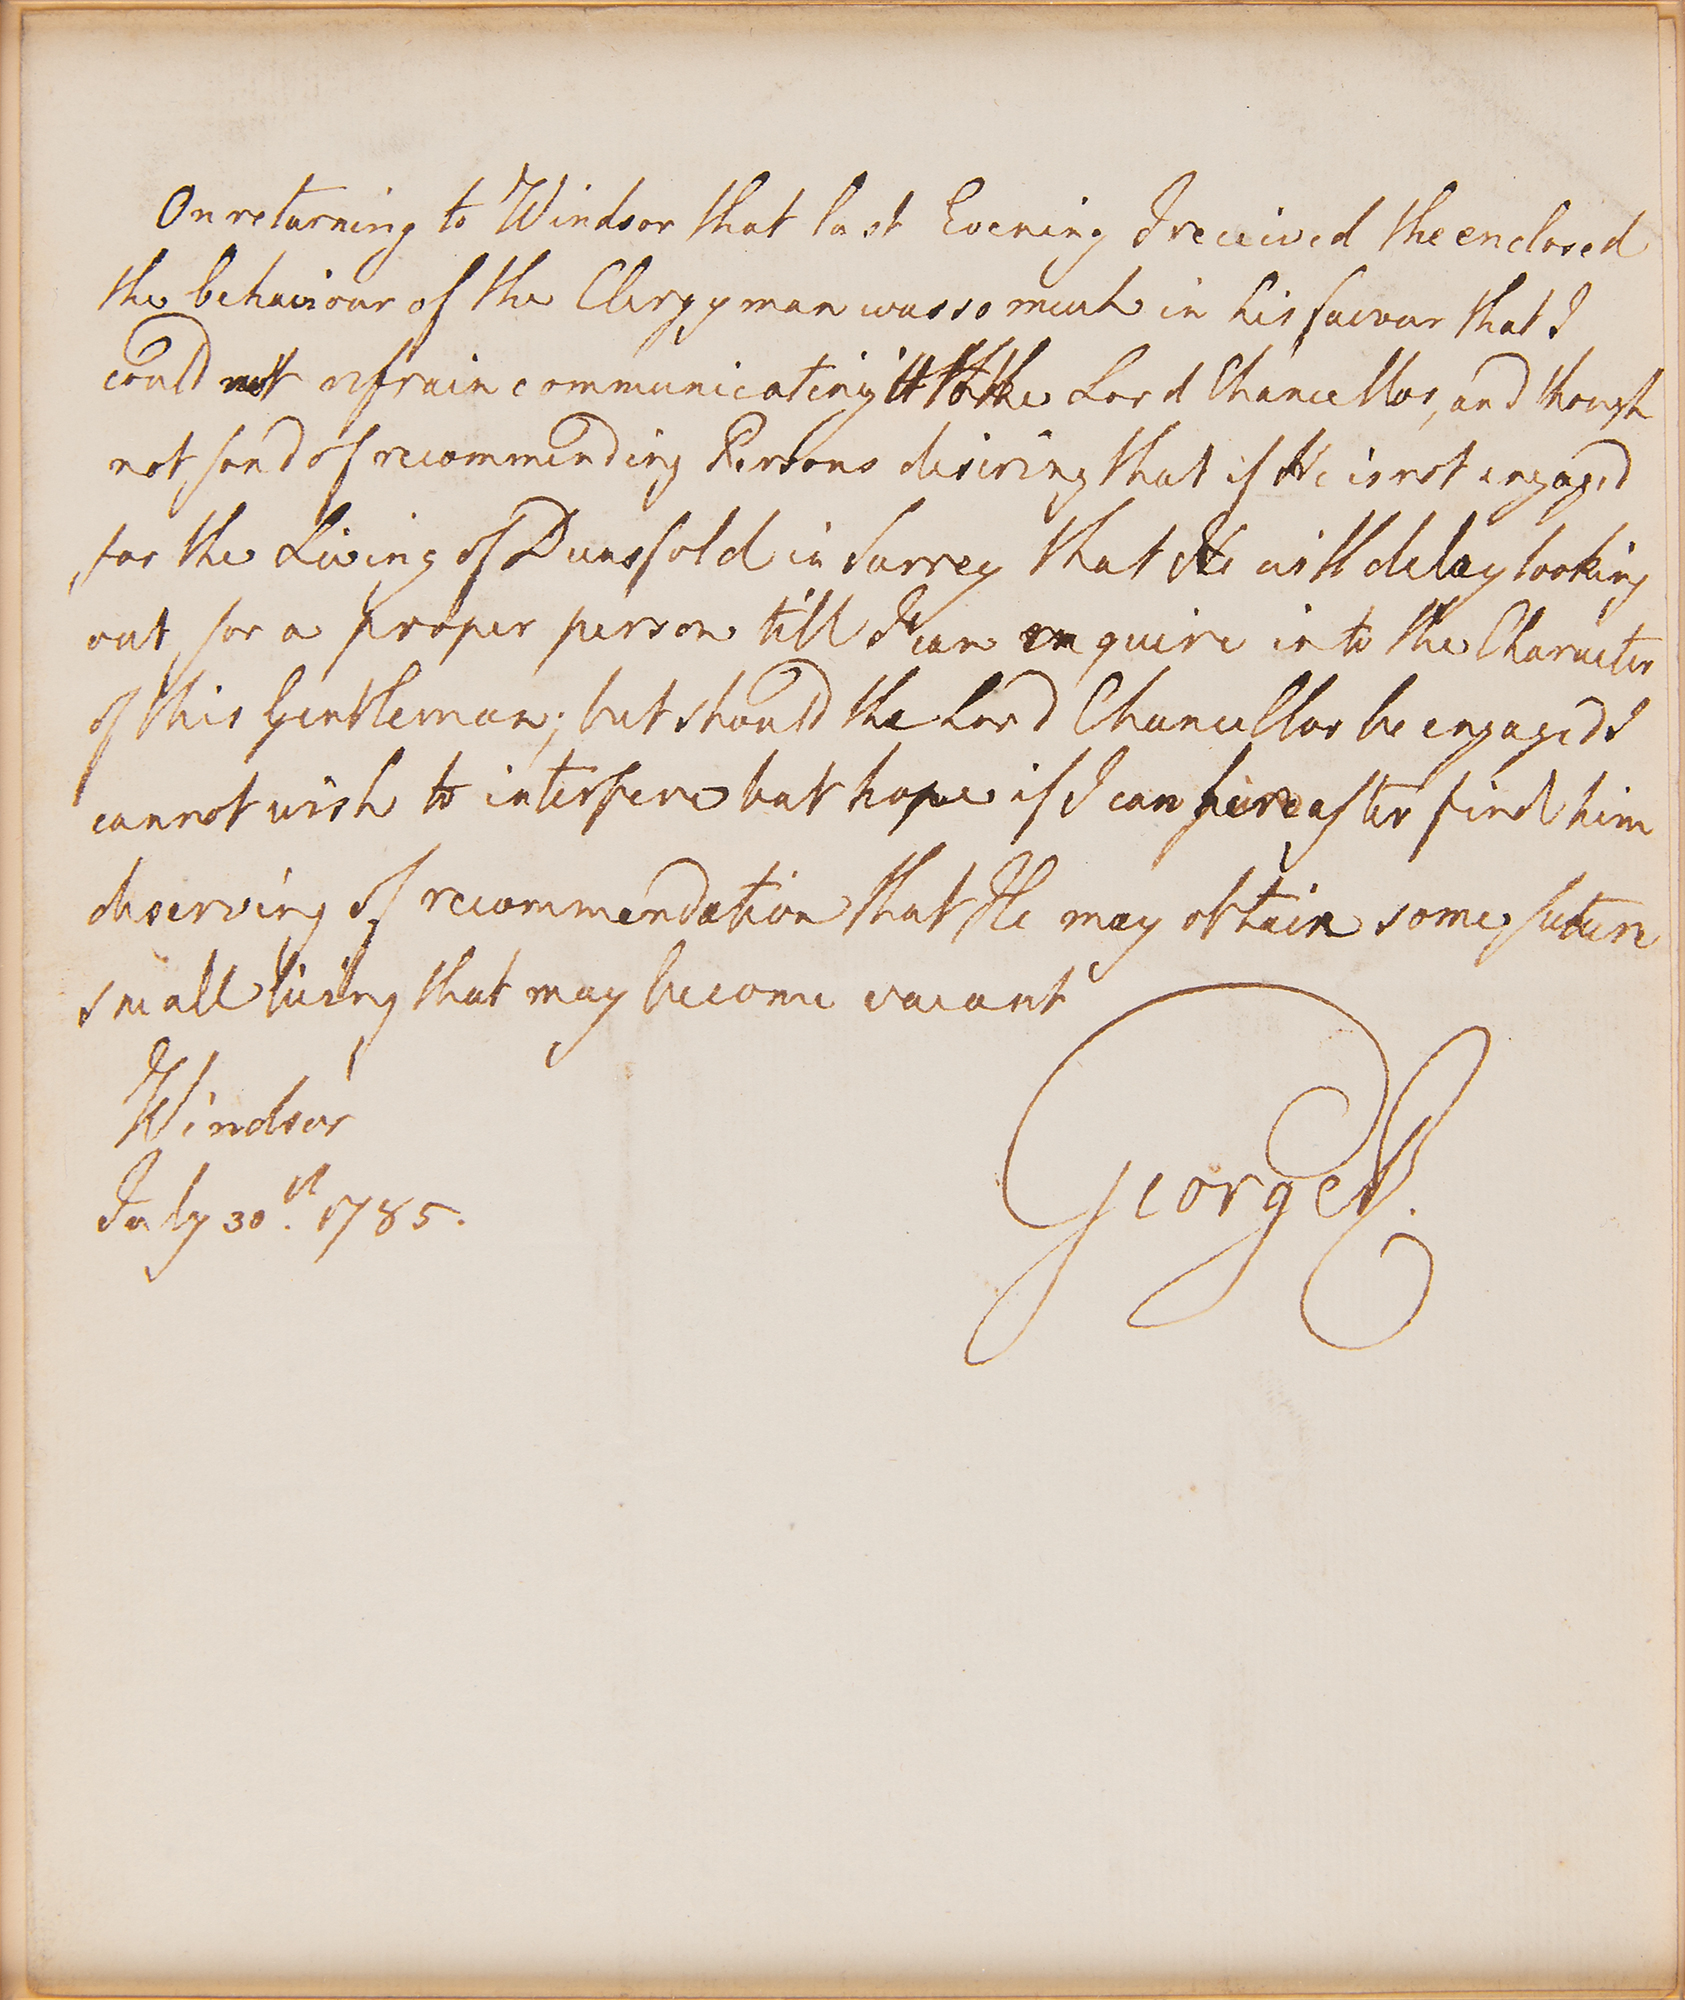 On returning to Windsor that last Evening I received the enclosed
the behaviour of the Clergyman was so much in his favour that I
could not refrain communicating it to the Lord Chancellor, and though
not fond of recommending Persons desiring that if He is not engaged
for the Living of Dunsfold in Surrey that He will delay looking
out for a proper person till I can enquire into the Character
of this Gentleman; but should the Lord Chancellor be engaged I
cannot wish to interfere but hope if I can hereafter find him
deserving of recommendation that He may obtain some future
small living that may become vacant
Windsor
July 30th. 1785.
George R.